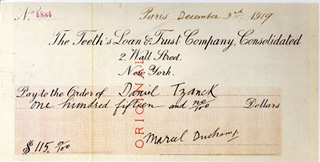 No 4864 Paris December 3rd 1919
The Teeth's Loan & Trust Company, Consolidated
2 Wall Street.
New York.
Pay to the Order of Daniel Tzanck
one hundred fifteen and no/100 Dollars
ORIGINAL
$ 115. 00/100 Marcel Duchamp